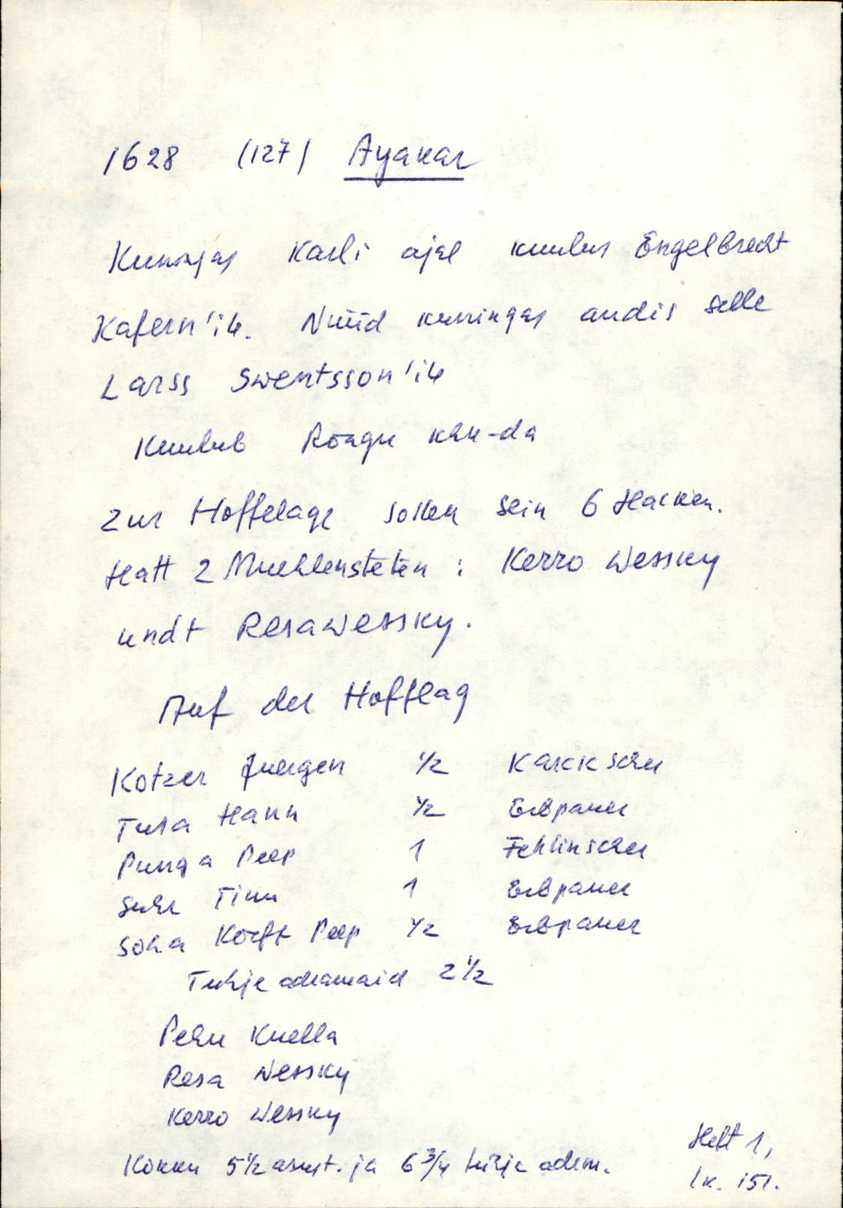 1628 (127) Ayakar
Kuningas Karli ajal kuulus Engelbrecht
Kafern'ile. Nüüd kuningas andis selle
Larss Swentsson'ile
Kuulub Rõngu khk-da
Zur Hoffelage sollen sein 6 Hacken.
Hatt 2 Muehlensteten: Kerro Wessky
undt Resa Wessky.
Auf der Hofflag
Kotzer Juergen 1/2 Karckscher
Tusa Hann 1/2 Erbpauer
Punga Peep 1 Fehlinscher
Suhr Tinn 1 Erbpauer
Soha Korft Peep 1/2 Erbpauer
Tühje adramaid 2 1/2
Pehu Kuella
Resa Wessky
Kerro Wessky
Kokku 5 1/2 asust. ja 6 3/4 tühje adrm.
Heft 1,
lk. 151.